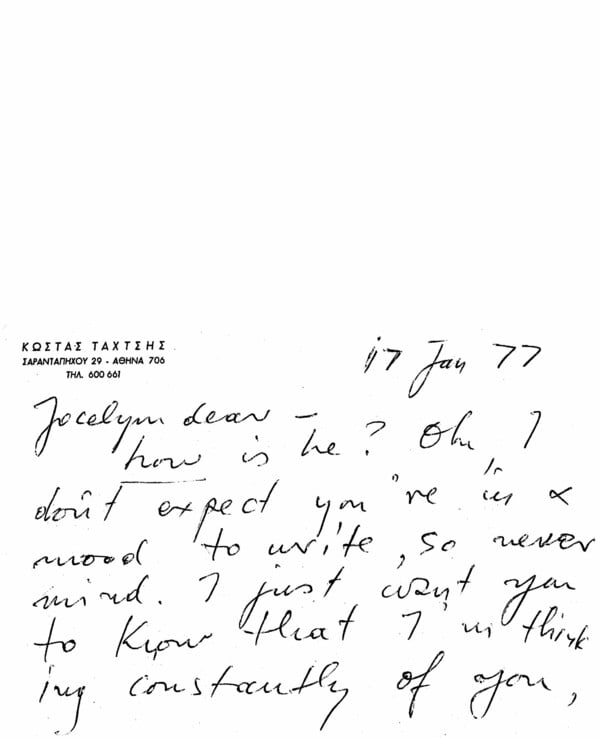 ΚΩΣΤΑΣ ΤΑΧΤΣΗΣ
ΣΑΡΑΝΤΑΠΗΧΟΥ 29 - ΑΘΗΝΑ 706
ΤΗΛ. 600 661
17 Jan 77
Jocelyn dear –
how is he? Oh, I
don't expect you're in a
mood to write, so never
mind. I just want you
to know that I'm think
ing constantly of you,